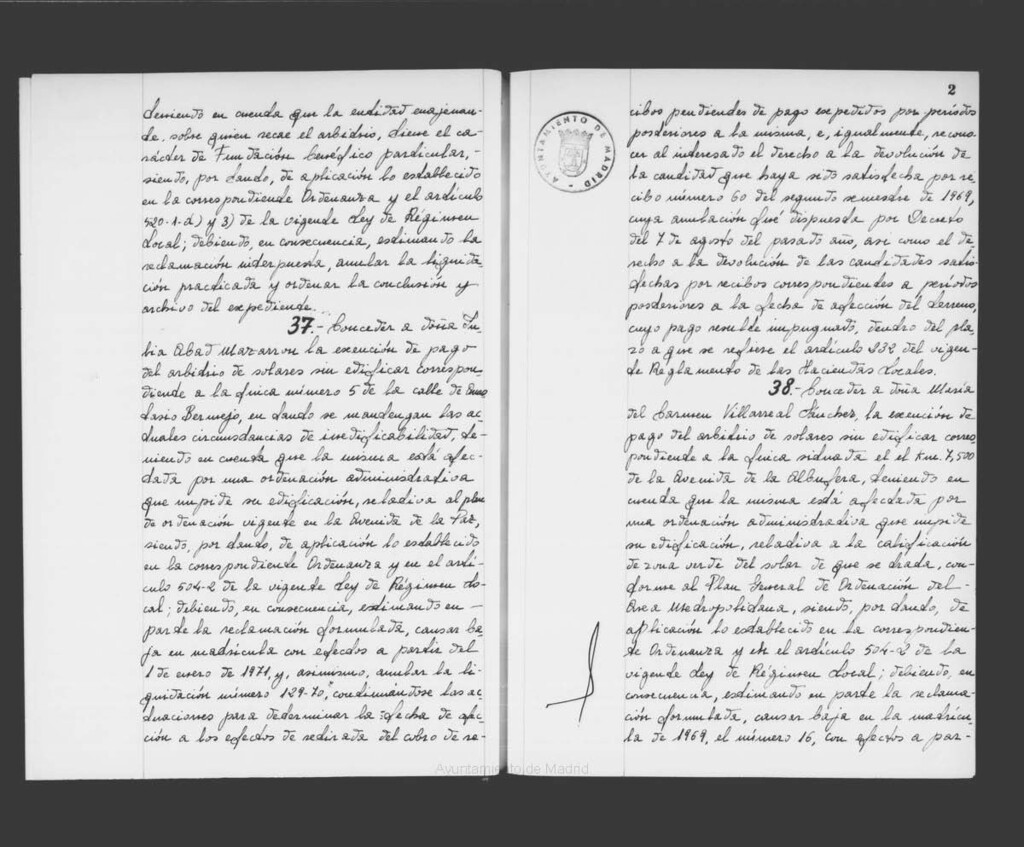 teniendo en cuenta que la entidad enajenan-
te, sobre quien recae el arbitrio, tiene el ca-
rácter de Fundación benéfico particular,-
siendo, por tanto, de aplicación lo establecido
en la correspondiente Ordenanza y el artículo
520-1-d) y 3) de la vigente Ley de Régimen
Local; debiendo, en consecuencia, estimando la
reclamación interpuesta, anular la liquida-
ción practicada y ordenar la conclusión y
archivo del expediente.
37.- Conceder a doña Ju-
lia Abad Mazarron la exención de pago
del arbitrio de solares sin edificar correspon-
diente a la finca número 5 de la calle de Anas-
tasio Bermejo, en tanto se mantengan las ac-
tuales circunstancias de inedificabilidad, te-
niendo en cuenta que la misma está afec-
tada por una ordenación administrativa
que impide su edificación, relativa al plan
de ordenación vigente en la Avenida de la Paz,
siendo, por tanto, de aplicación lo establecido
en la correspondiente Ordenanza y en el artí-
culo 504-2 de la vigente Ley de Régimen Lo-
cal; debiendo, en consecuencia, estimando en -
parte la reclamación formulada, causar ba-
ja en matrícula con efectos a partir del
1 de enero de 1971, y, asimismo, anular la li-
quidación número 129-70, continuándose las ac-
tuaciones para determinar la fecha de afec-
ción a los efectos de retirada del cobro de re-
2
AYUNTAMIENTO DE MADRID
cibos pendientes de pago expedidos por períodos
posteriores a la misma, e, igualmente, recono-
cer al interesado el derecho a la devolución de
la cantidad que haya sido satisfecha por re-
cibo número 60 del segundo semestre de 1969,
cuya anulación fué dispuesta por Decreto
del 7 de agosto del pasado año, así como el de-
recho a la devolución de las cantidades satis-
fechas por recibos correspondientes a períodos
posteriores a la fecha de afección del terreno,
cuyo pago resulte impugnado, dentro del pla-
zo a que se refiere el artículo 232 del vigen-
te Reglamento de las Haciendas Locales.
38.- Conceder a doña María
del Carmen Villarreal Sánchez, la exención de
pago del arbitrio de solares sin edificar corres-
pondiente a la finca situada el el Km. 7,500
de la Avenida de la Albufera, teniendo en
cuenta que la misma está afectada por
una ordenación administrativa que impide
su edificación, relativa a la calificación
de zona verde del solar de que se trata, con-
forme al Plan General de Ordenación del -
Area Metropolitana, siendo, por tanto, de
aplicación lo establecido en la correspondien-
te Ordenanza y en el artículo 504-2 de la
vigente Ley de Régimen Local; debiendo, en
consecuencia, estimando en parte la reclama-
ción formulada, causar baja en la matrícu-
la de 1969, el número 16, con efectos a par-
Ayuntamiento de Madrid